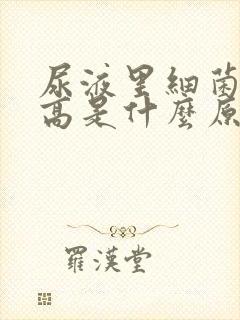 尿液里細菌
高是什麼原
羅漢堂